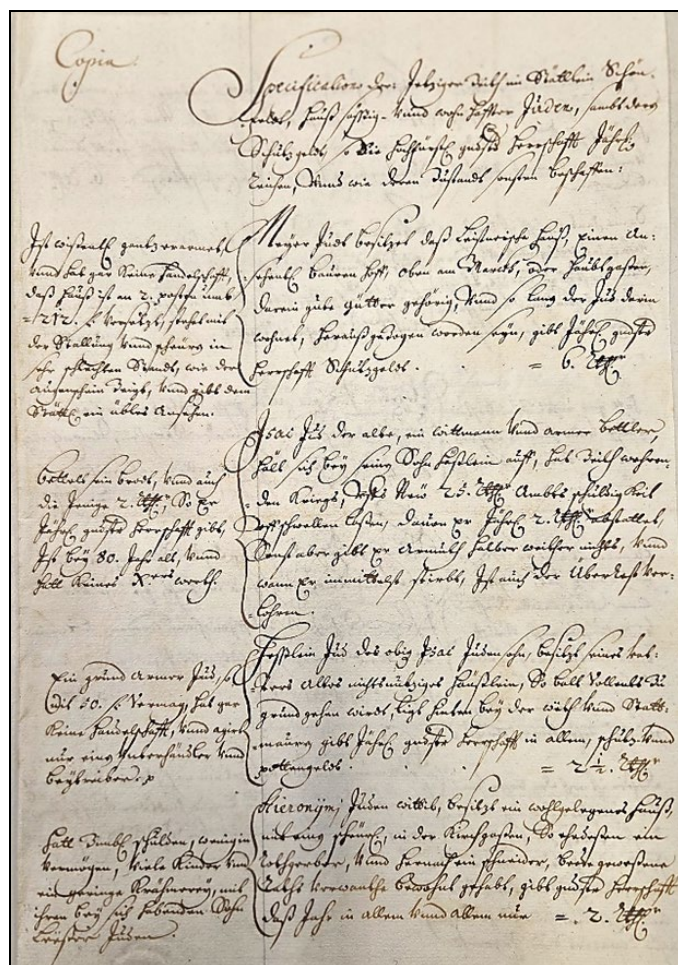 Copia
Specification der Jetziger Zeith im Stättlein Schön-
feldt, hauß sässig- Vnnd wohnhaffter Juden, sambt dem
Schutzgeldt, so Sie Hochfürstl. gndste Herrschafft Jährl.
raichen, Vnnd wie deren Zustandt sonsten beschaffen:
Ist wißentl. gantz verarmet,
Vnnd hat gar keine handelschafft,
daß hauß ist an 2. posten umb
212. f. Versetzt, stehet mit
der Stallung Vnnd scheuern in
sehr schlechten Standt, wie der
augenschein Zeigt, Vnnd gibt dem
Stättl. ein übles Ansehen.
Meyer Jud besitzet daß hauß, Einen An-
sehentl. bauren hoff, oben am Marckt, oder haubtgaßen,
darein gute gütter gehörig, Vnnd so lang der Jud darin
wohnet, herauß gezogen worden seyn, gibt Jährl. gndste
Herrschafft Schutzgeldt. = 6. Rthlr
bettelt sein brodt, Vnnd auch
die Jenige 2. Rthlr, So Er
Jährl. gndste Herrschafft gibt,
Ist bey 80. Jahr alt, Vnnd
hatt keines Xers werth.
Isai Jud der alte, ein wittmann Vnnd armer bettler,
hält sich bey seinem Sohn Heßlein auff, hat Zeith wehren-
den Kriegs, 25. Rthlr Ambts schuldigkeit
auffschwellen laßen, dauon Er Jährl. 2. Rthlr abstattet,
Sonst aber gibt Er Armuth halber weither nichts, Vnnd
wann Er immittelst stirbt, Ist auch der Überrest Ver-
lohren.
Ein grund armer Jud, so
nit 50. f. Vermag, hat gar
keine handelschafft, Vnnd agirt
nur einen Vnterhändler Vnnd
beytreiber. p
Heßlein Jud des obig Isai Juden sohn, besitzt seines Vat-
ters altes nichtsnutziges häußlein, So balt Vollents Zu
grund gehen wirdt, ligt hinten bey der Statt-
mauern gibt Jährl. gndste Herrschafft in allem, schutz- Vnnd
geldt. = 2½. Rthlr
hatt Zimbl. schulden, wenig im
Vermögen, Viele Kinder Vnnd
ein geringe Krähmerey, mit
ihren bey sich habenden Sohn
Juden.
Hieronymj Juden wittib, besitzt ein wohlgelegenes hauß,
mit einer scheuer, in der Kirchgaßen, So ehedessen ein
Rothgerber, Vnnd hernach ein schneider, beede geweßene
Raths Verwanthe bewohnt gehabt, gibt gndste Herrschafft
daß Jahr in allem Vnnd allem nur = 2. Rthlr